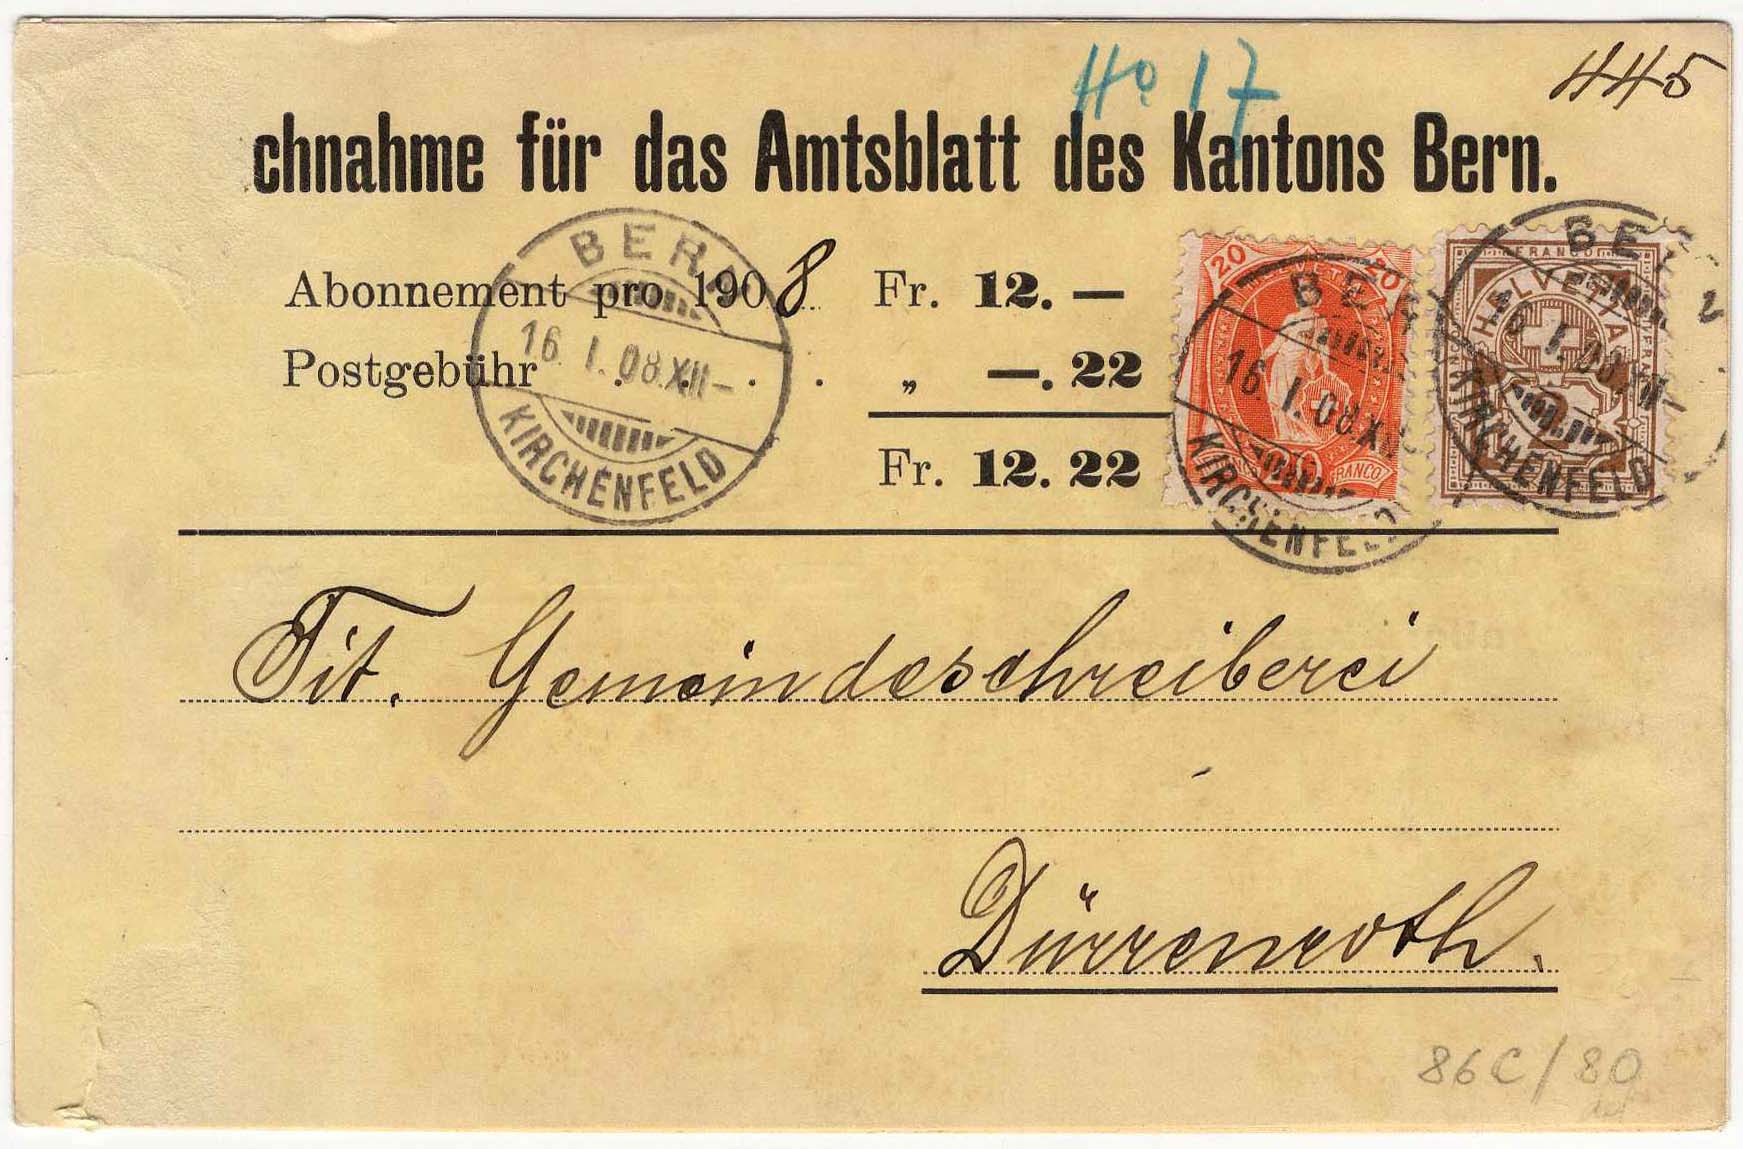 No 17
445
chnahme für das Amtsblatt des Kantons Bern.
Abonnement pro 1908 Fr. 12. —
Postgebühr . . . . „ —. 22
Fr. 12. 22
BERN
16. I. 08. XII –
KIRCHENFELD
20 HELVETIA 20
20
FRANCO
BERN
16. I. 08. XII
KIRCHENFELD
FRANCO
HELVETIA
2
BERN
16. I. 08. XII –
KIRCHENFELD
2
Tit. Gemeindeschreiberei
Dürrenroth.
86C/80